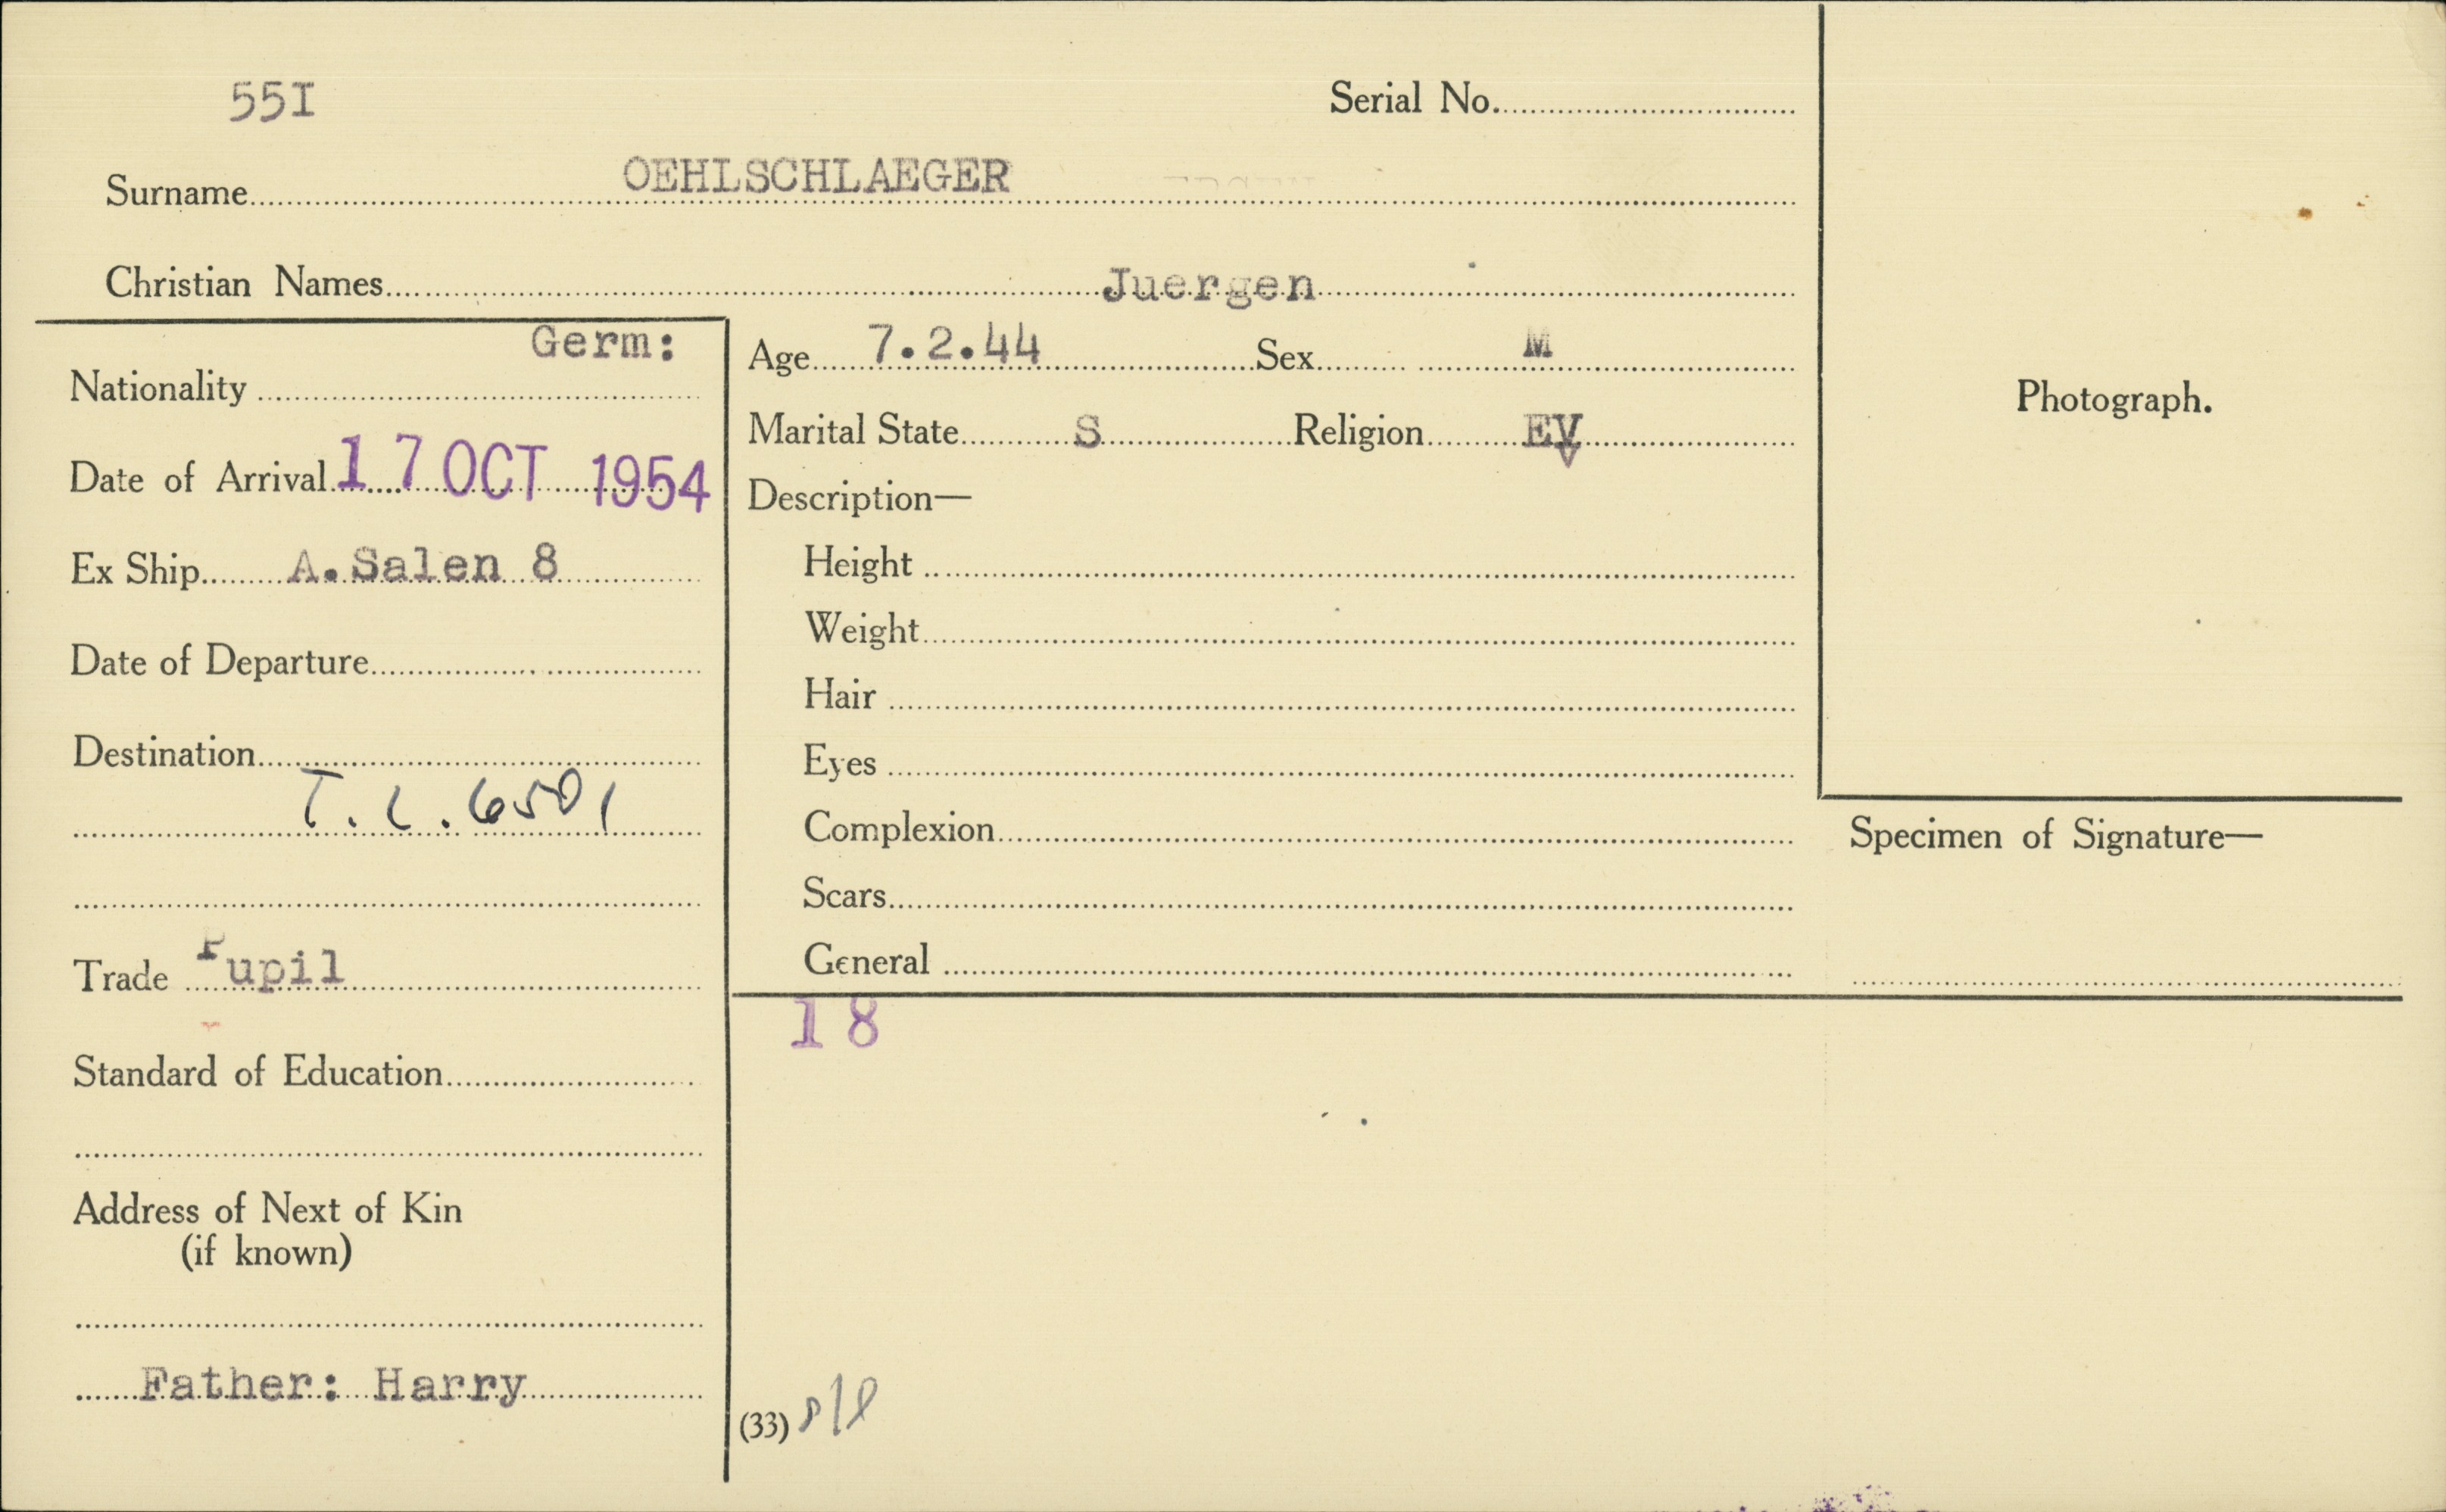 55I
Serial No.
Surname OEHLSCHLAEGER
Christian Names Juergen
Germ:
Nationality
Date of Arrival 17 OCT 1954
Ex Ship A.Salen 8
Date of Departure
Destination
T. L. 6501
Trade Pupil
Standard of Education
Address of Next of Kin
(if known)
Father: Harry
Age 7.2.44 Sex M
Marital State S Religion EV
Description—
Height
Weight
Hair
Eyes
Complexion
Scars
General
18
(33)
Photograph.
Specimen of Signature—